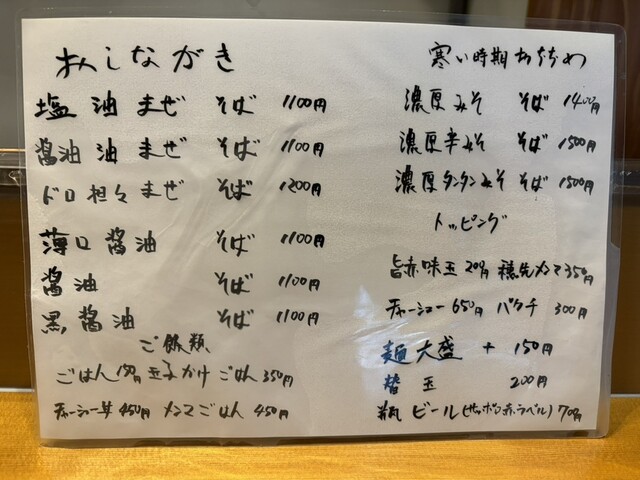 おしながき
塩油まぜ そば 1100円
醤油油まぜ そば 1100円
ドロ担々まぜ そば 1200円
薄口醤油 そば 1100円
醤油 そば 1100円
黒醤油 そば 1100円
ご飯類
ごはん150円 玉子かけごはん 350円
チャーシュー丼 450円 メンマごはん 450円
寒い時期おすすめ
濃厚みそ そば 1400円
濃厚辛みそ そば 1500円
濃厚タンタンみそ そば 1500円
トッピング
旨赤味玉 200円 穂先メンマ 350円
チャーシュー 650円 パクチ 300円
麺大盛 + 150円
替玉 200円
瓶ビール(サッポロ赤ラベル) 700円